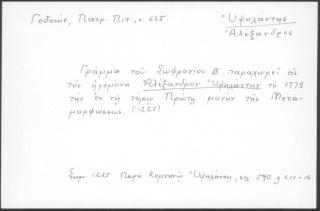 Γεδεών, Πατρ. Πιν., σ. 665
Ὑψηλάντης
Ἀλέξανδρος
Γράμμα τοῦ Σωφρονίου Β΄ παραχωρεῖ εἰς
τὸν ἡγεμόνα Ἀλέξανδρον Ὑψηλάντην τὸ 1778
τὴν ἐν τῇ νήσῳ Πρώτῃ μονὴν τῆς Μετα-
μορφώσεως. (1225)
1225 Παρὰ Κομνηνῷ Ὑψηλάντῃ, σελ. 590 611-16